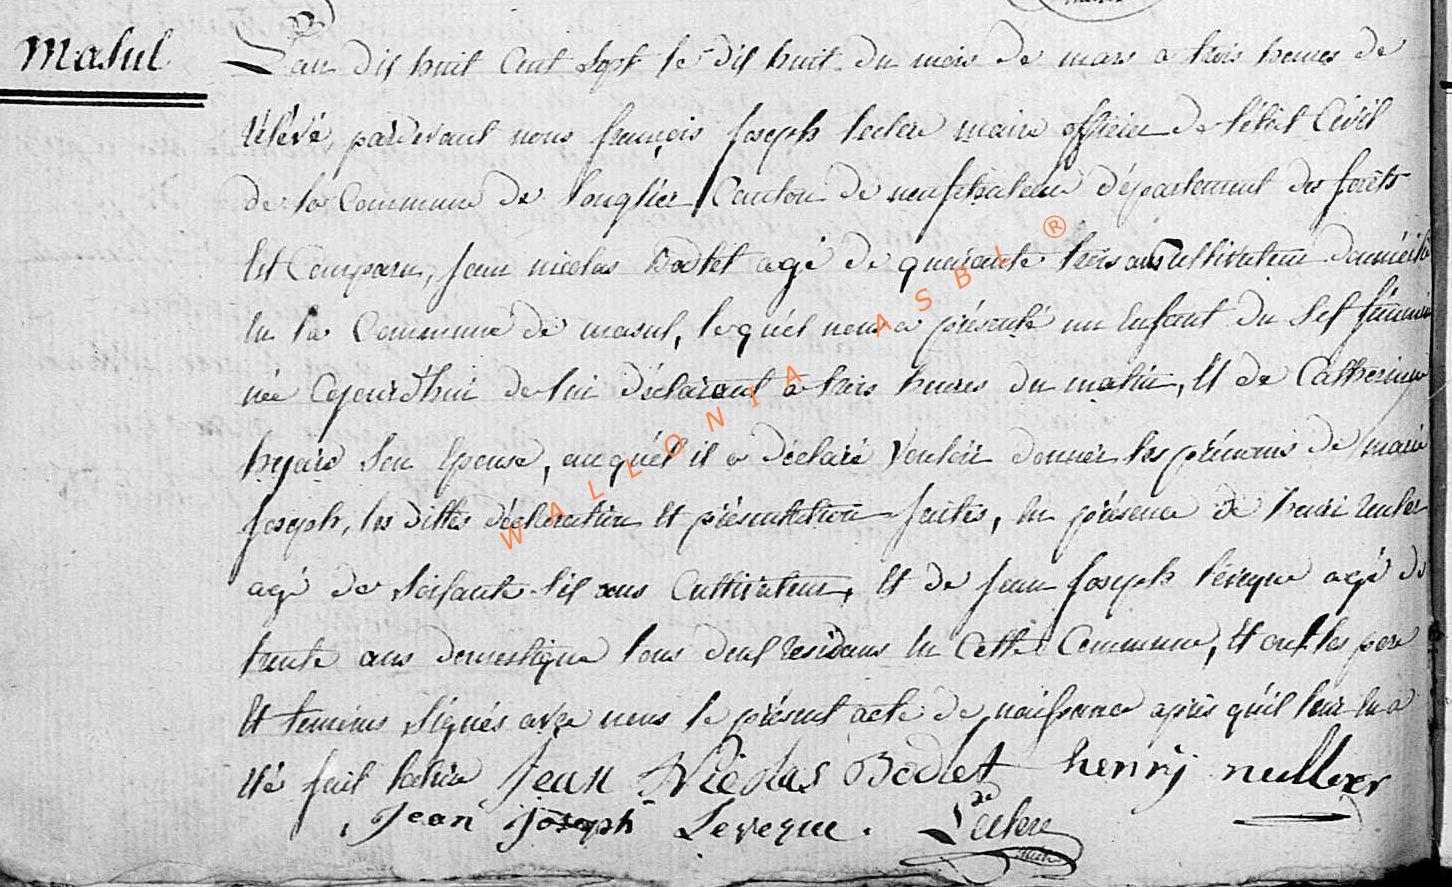 Masul
L'an dix huit Cent Sept le dix huit du mois de mars a trois heures de
rélévé, pardevant nous françois joseph Leclere maire officier de l'état Civil
de la Commune de longlier Canton de neufchateau département des forêts
Est Comparu, jean nicolas Bodet agé de quarante trois ans Cultivateur domicilié
en la Commune de masul, lequél nous a présenté un Enfant du Sexe féminin
née Cejourd'hui de lui déclarant à trois heures du matin, Et de Catherine
Son Epouse, auquél il a déclaré Vouloir donner les prénoms de marie
joseph, les dittes déclaration Et présentation faites, En présence de henri
agé de Soixante Six ans Cultivateur, Et de jean joseph léveque agé de
trente ans domestique tous deux residans En Cette Commune, Et ont les pere
Et temoins Signés avec nous le présent acte de naissance aprés qu'il leur En a
Eté fait lecture Jean Nicolas Bodet henrÿ
Jean joseph Leveque. Leclere
WALLONIA ASBL ®